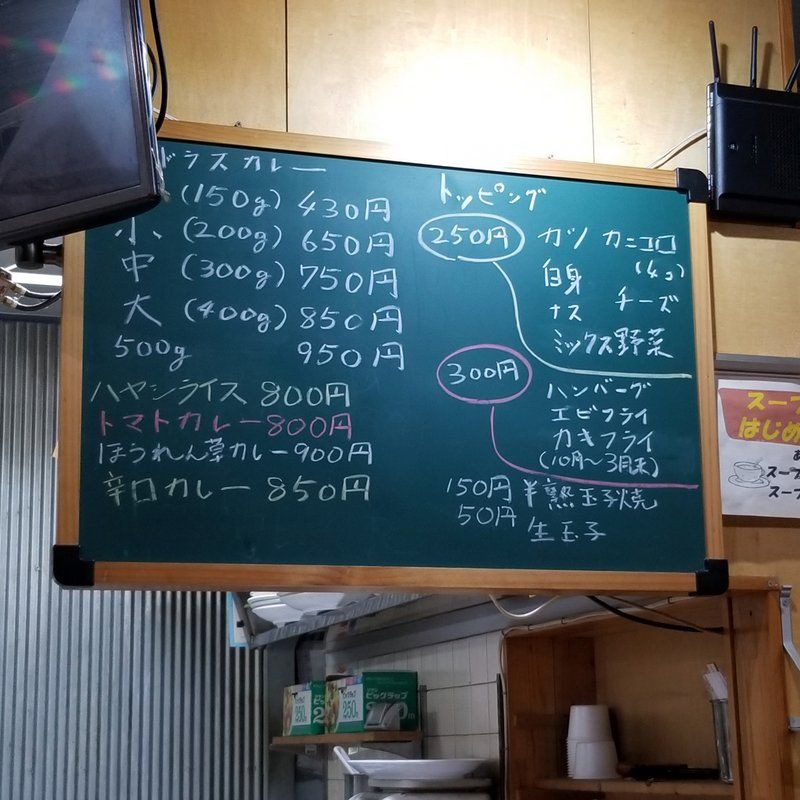 ドラスカレー
(150g) 430円
小 (200g) 650円
中 (300g) 750円
大 (400g) 850円
500g 950円
ハヤシライス 800円
トマトカレー 800円
ほうれん草カレー 900円
辛口カレー 850円
トッピング
250円 カツ カニコロ
白身 (4コ)
ナス チーズ
ミックス野菜
300円 ハンバーグ
エビフライ
カキフライ
(10月〜3月末)
150円 半熟玉子焼
50円 生玉子
スープ
はじめ
スープ
スープ
ビッグラップ
250